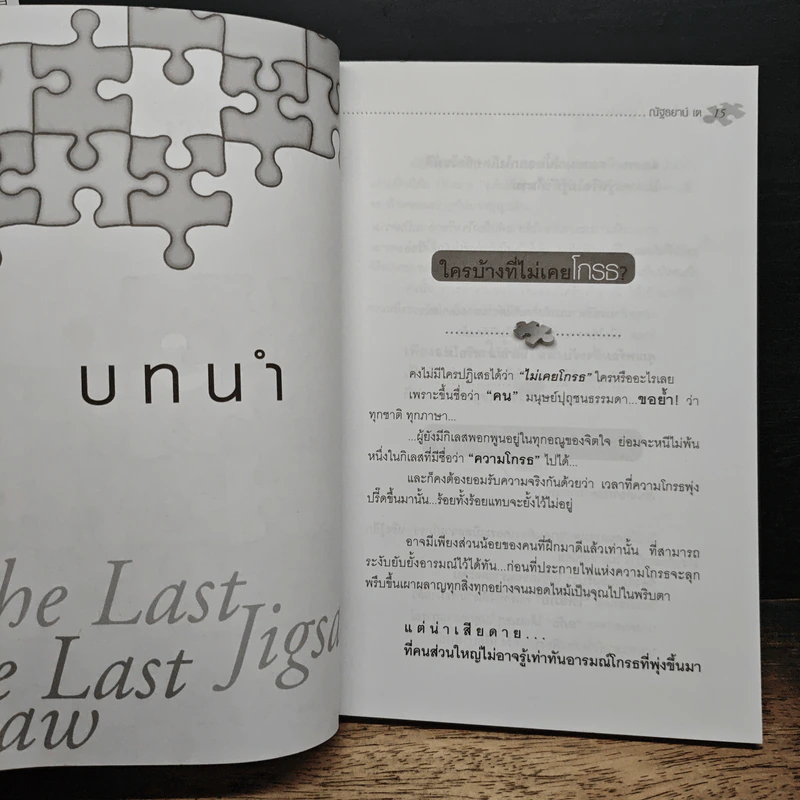 บทนำ
he Last
Jigsa
e Last
aw
ณัฐธยาน์ เต 15
ใครบ้างที่ไม่เคยโกรธ?
คงไม่มีใครปฏิเสธได้ว่า “ไม่เคยโกรธ” ใครหรืออะไรเลย
เพราะขึ้นชื่อว่า “คน” มนุษย์ปุถุชนธรรมดา...ขอย้ำ! ว่า
ทุกชาติ ทุกภาษา...
...ผู้ยังมีกิเลสพอกพูนอยู่ในทุกอณูของจิตใจ ย่อมจะหนีไม่พ้น
หนึ่งในกิเลสที่มีชื่อว่า “ความโกรธ” ไปได้...
และก็คงต้องยอมรับความจริงกันด้วยว่า เวลาที่ความโกรธพุ่ง
ปรี๊ดขึ้นมานั้น...ร้อยทั้งร้อยแทบจะยั้งไว้ไม่อยู่
อาจมีเพียงส่วนน้อยของคนที่ฝึกมาดีแล้วเท่านั้น ที่สามารถ
ระงับยับยั้งอารมณ์ไว้ได้ทัน...ก่อนที่ประกายไฟแห่งความโกรธจะลุก
พรึบขึ้นเผาผลาญทุกสิ่งทุกอย่างจนมอดไหม้เป็นจุณไปในพริบตา
แต่น่าเสียดาย...
ที่คนส่วนใหญ่ไม่อาจรู้เท่าทันอารมณ์โกรธที่พุ่งขึ้นมา